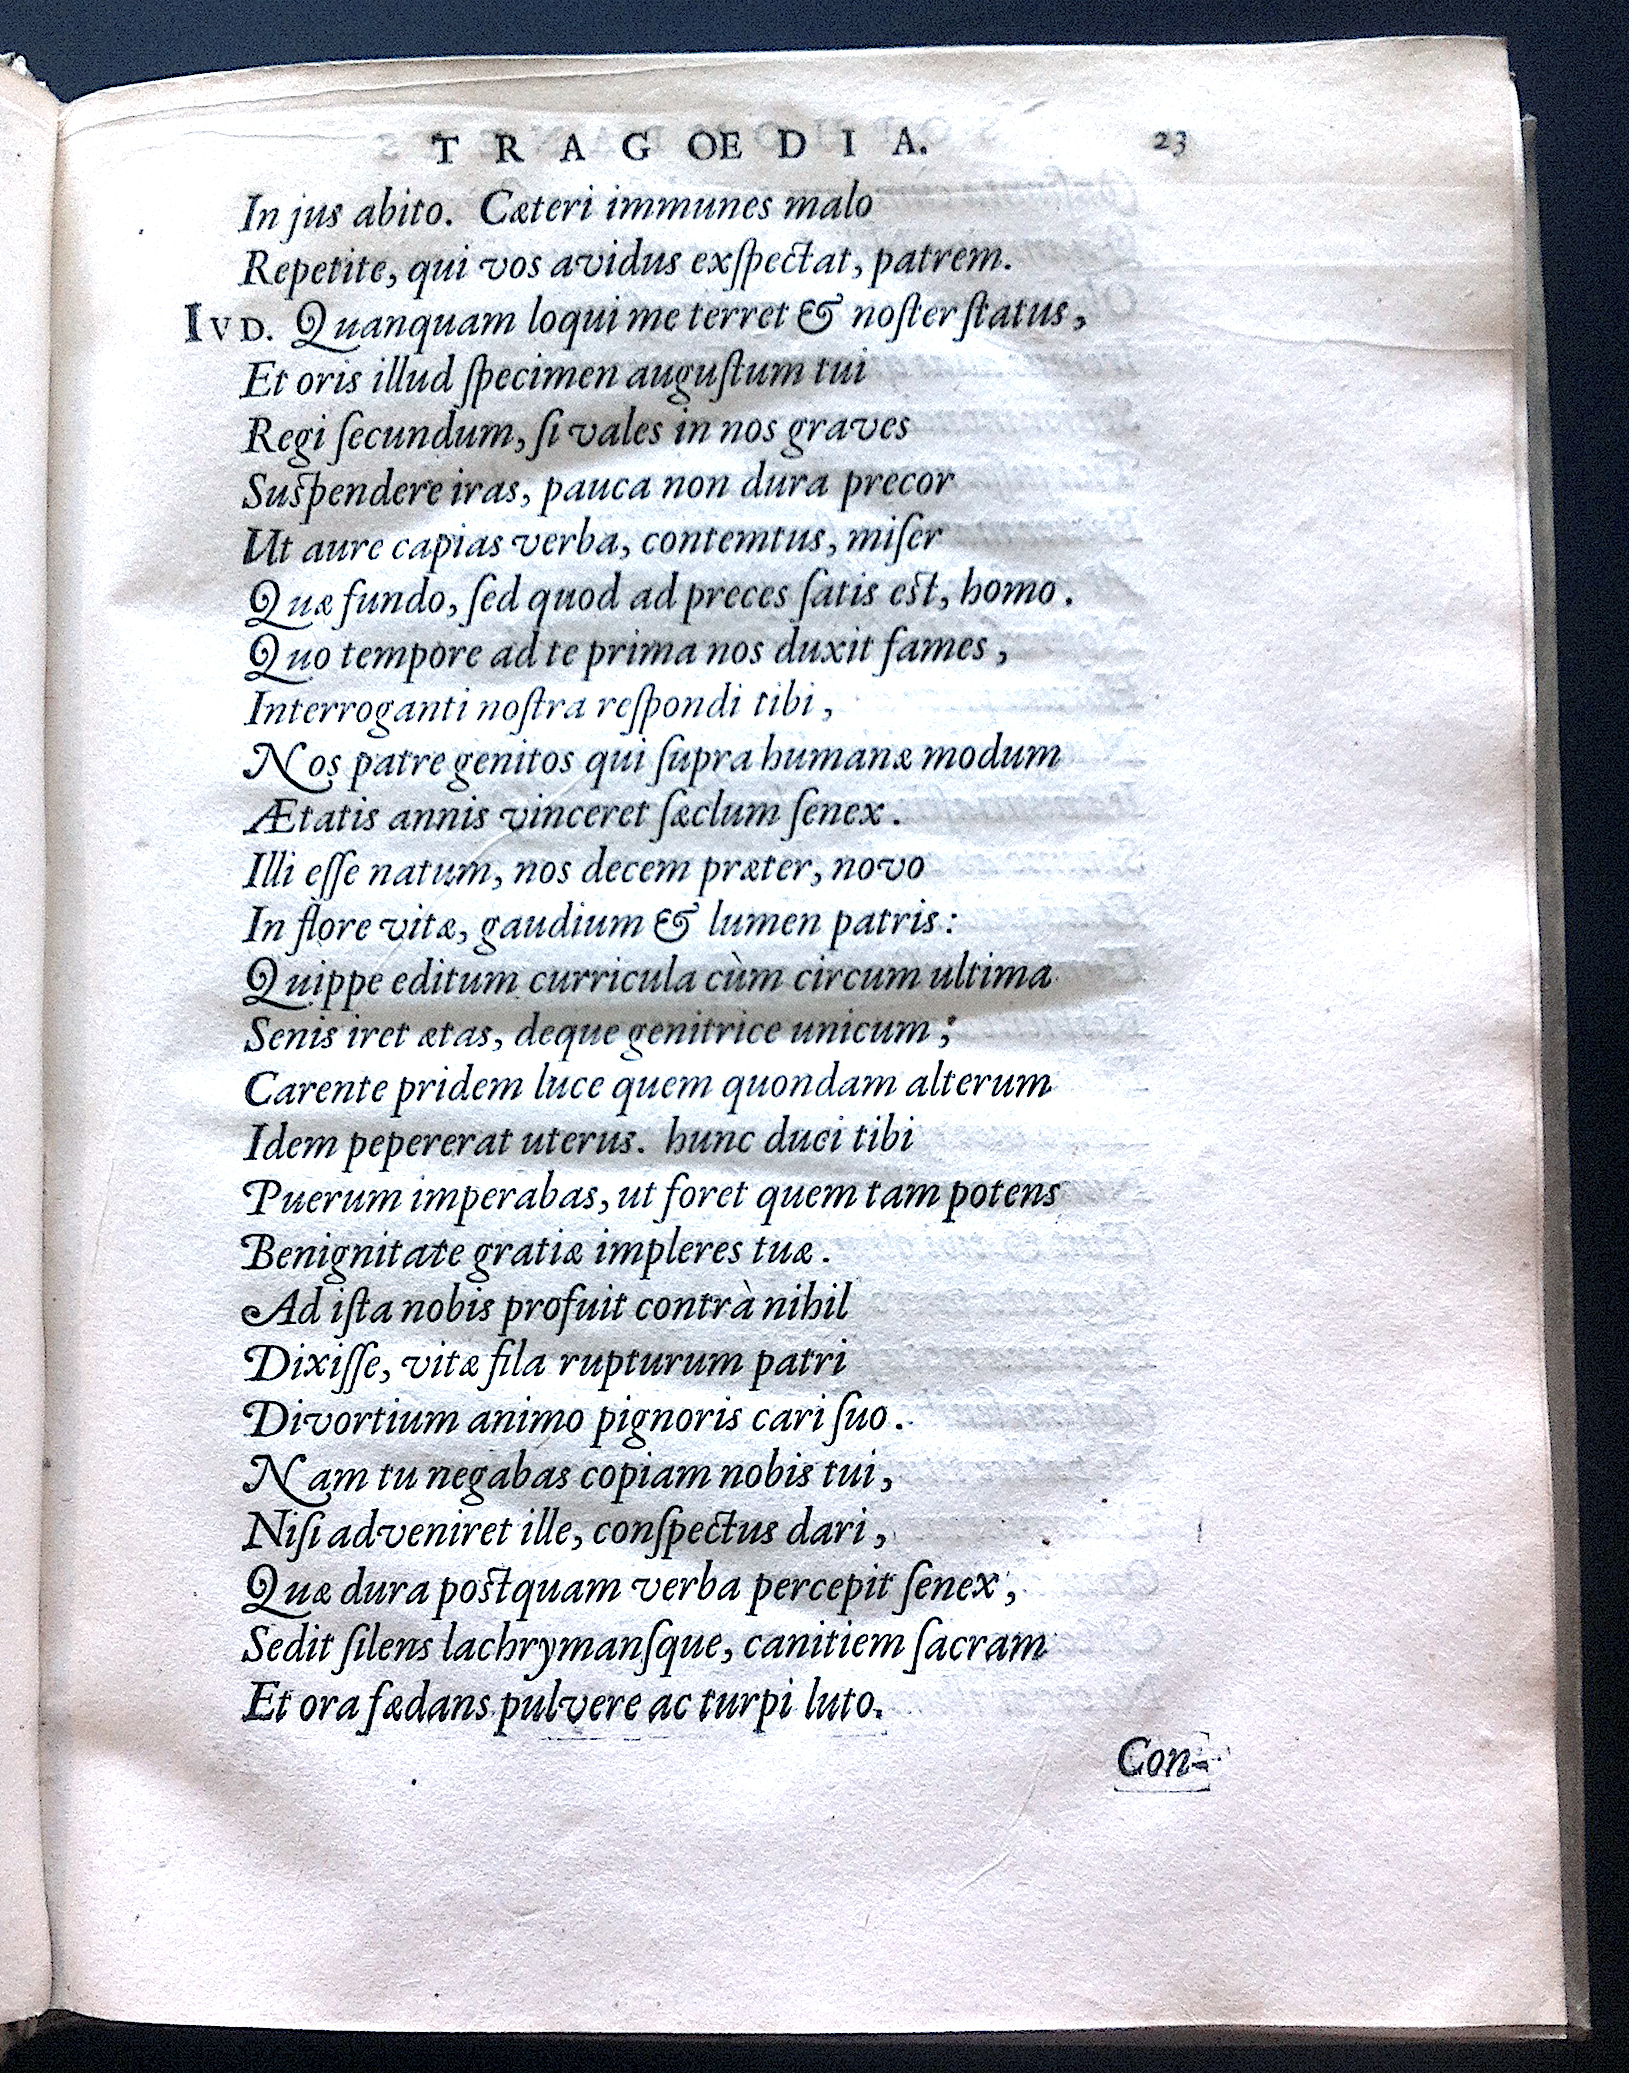 TRAGOEDIA. 23
In jus abito. Cæteri immunes malo
Repetite, qui vos avidus exſpectat, patrem.
IVD. Quanquam loqui me terret & noſter ſtatus,
Et oris illud ſpecimen auguſtum tui
Regi ſecundum, ſi vales in nos graves
Suspendere iras, pauca non dura precor
Ut aure capias verba, contemtus, miſer
Quæ fundo, ſed quod ad preces ſatis est, homo.
Quo tempore ad te prima nos duxit fames,
Interroganti noſtra reſpondi tibi,
Nos patre genitos qui ſupra humanæ modum
Ætatis annis vinceret ſæclum ſenex.
Illi eſſe natum, nos decem præter, novo
In flore vitæ, gaudium & lumen patris:
Quippe editum curricula cùm circum ultima
Senis iret ætas, deque genitrice unicum;
Carente pridem luce quem quondam alterum
Idem pepererat uterus. hunc duci tibi
Puerum imperabas, ut foret quem tam potens
Benignitate gratiæ impleres tuæ.
Ad iſta nobis profuit contrà nihil
Dixiſſe, vitæ fila rupturum patri
Divortium animo pignoris cari ſuo.
Nam tu negabas copiam nobis tui,
Niſi adveniret ille, conſpectus dari,
Quæ dura postquam verba percepit ſenex,
Sedit ſilens lachrymanſque, canitiem ſacram
Et ora fædans pulvere ac turpi luto.
Con-